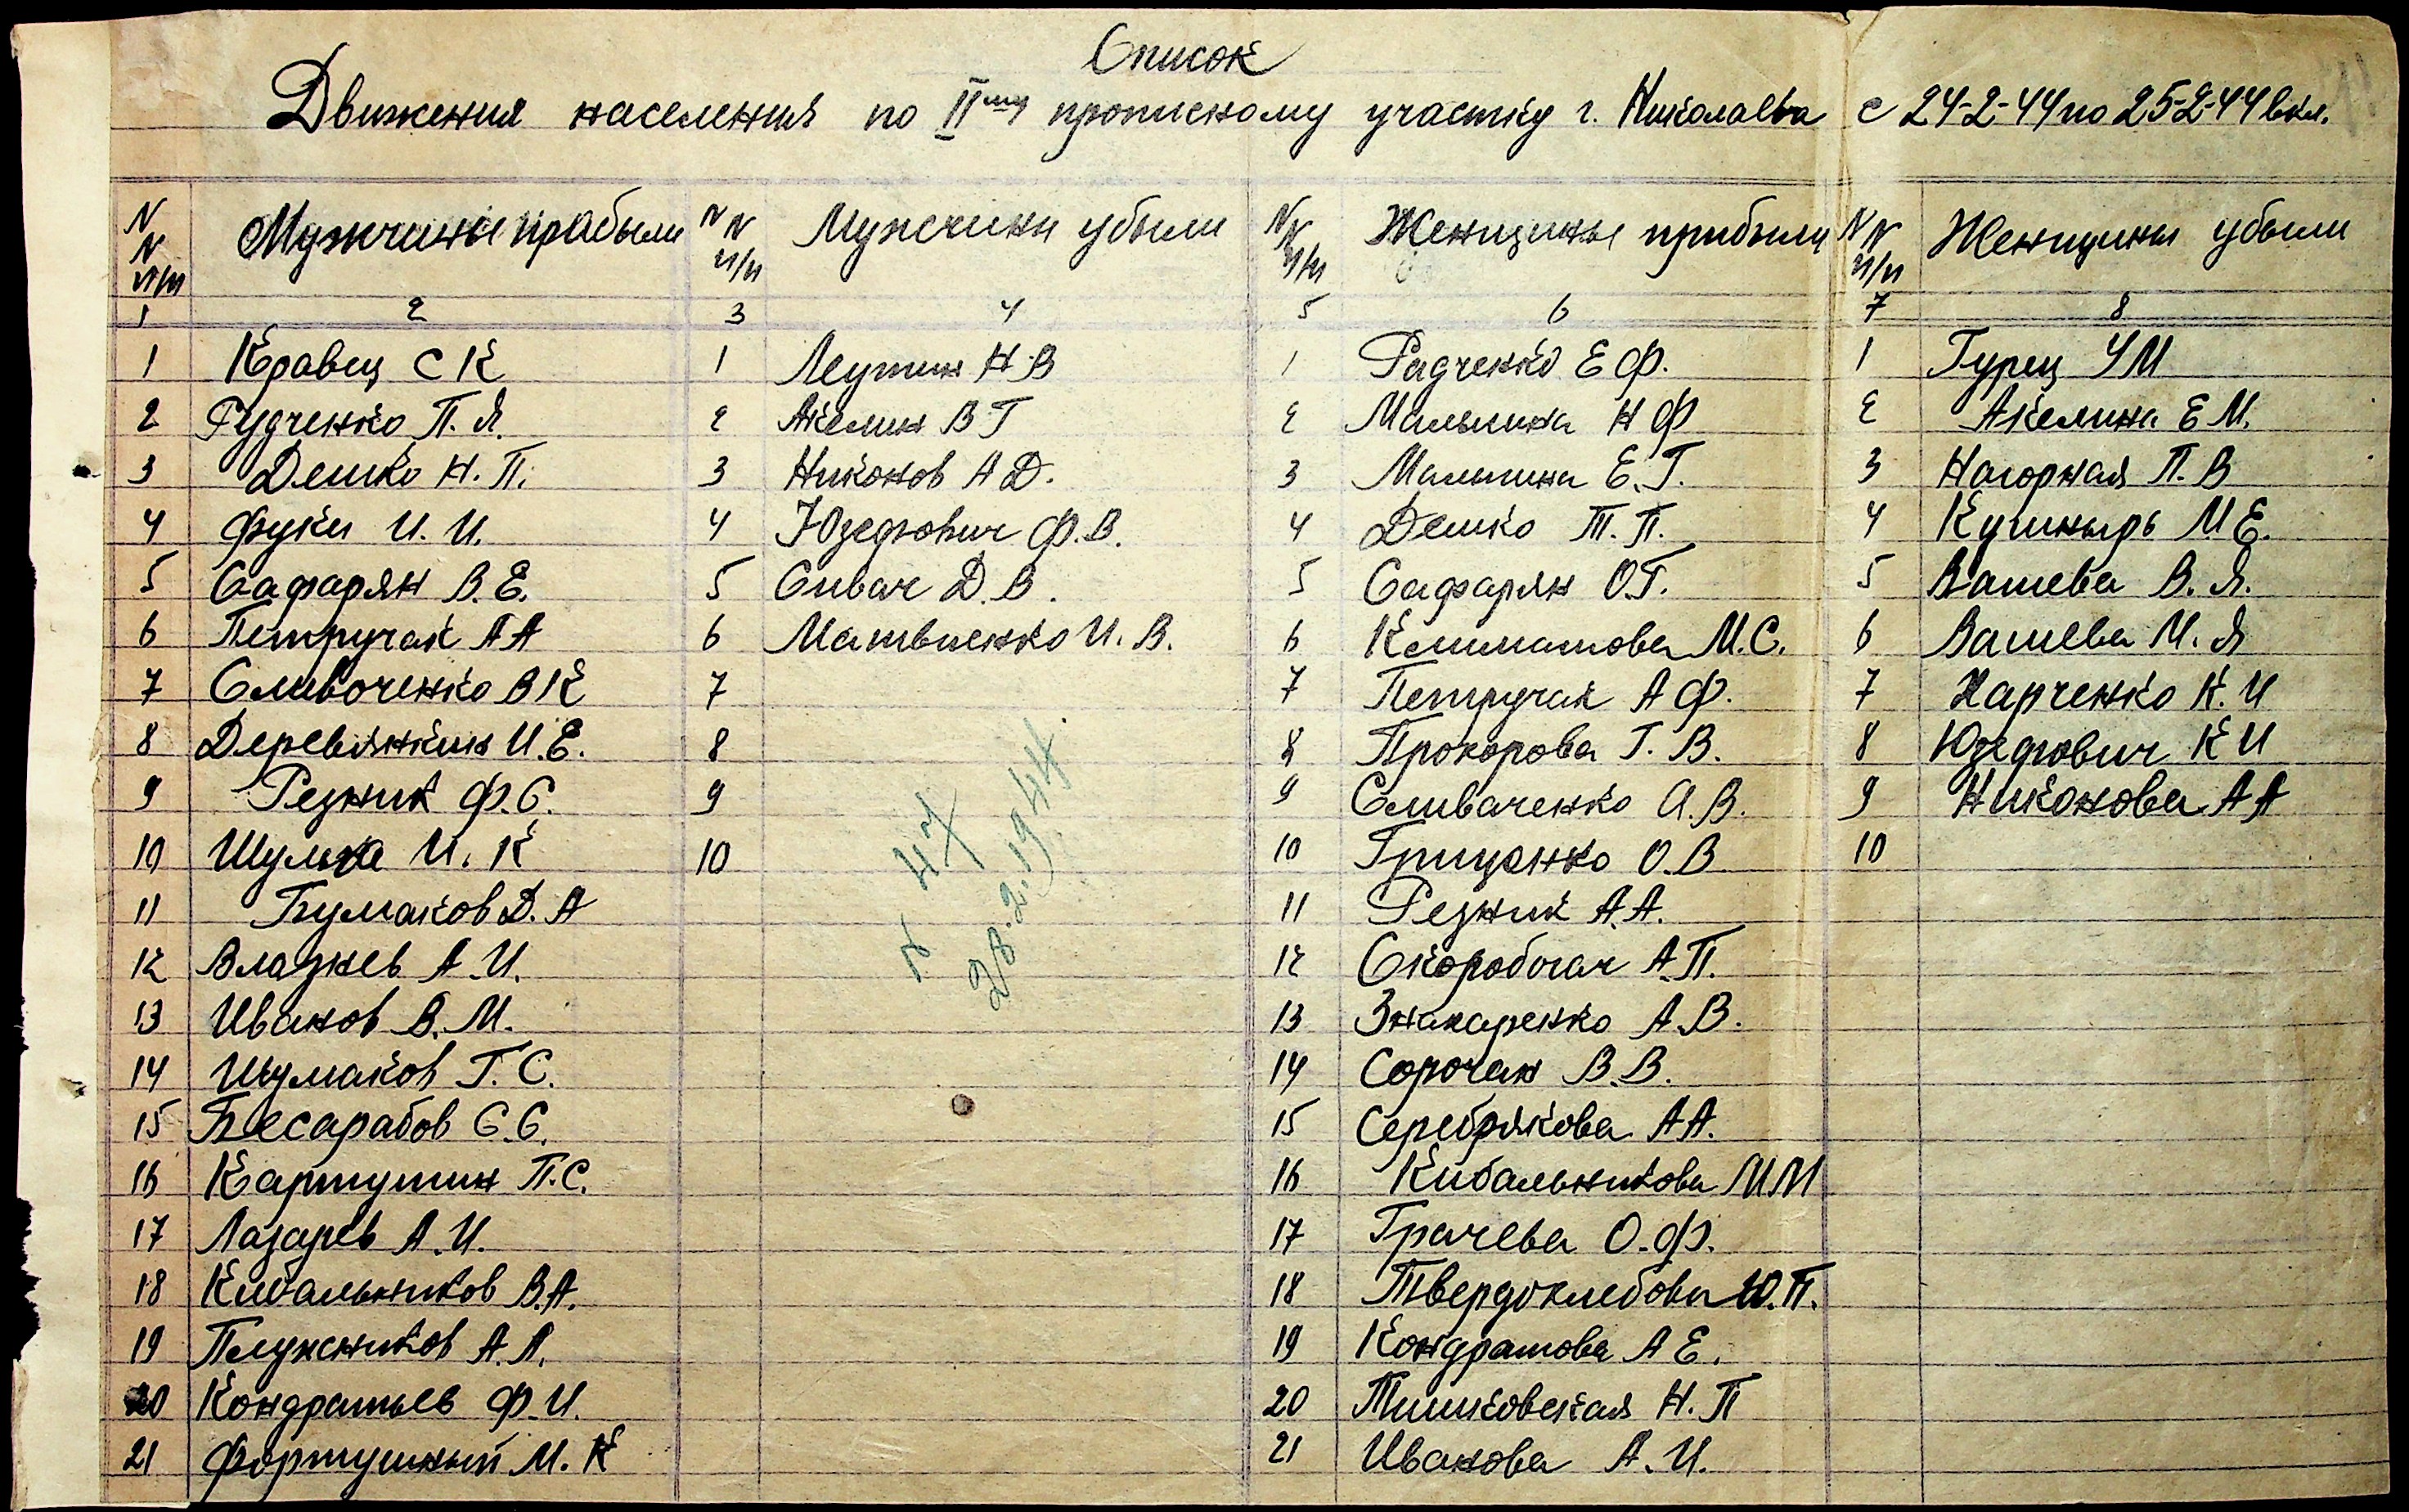 Список
Движения населения по II му прописному участку г. Николаева с 24-2-44 по 25-2-44 вкл.
N N п/п Мужчины прибыли N N п/п Мужчины убыли N N п/п Женщины прибыли N N п/п Женщины убыли
1 2 3 4 5 6 7 8
1 Кравец С К 1 Леутин Н В 1 Радченко Е Ф. 1 Гурец У М
2 Рудченко П. Я. 2 Акелин В Г 2 Малыгина Н Ф 2 Акелина Е М.
3 Дешко Н. П. 3 Никонов А Д. 3 Малыгина Е. Г. 3 Нагорная П. В
4 Фукси И. И. 4 Юзефович Ф. В. 4 Дешко Т. П. 4 Кушнырь М Е.
5 Сафарян В. Е. 5 Сивач Д. В. 5 Сафарян О. Г. 5 Вашева В. Я.
6 Петручак А А 6 Матвиенко И. В. 6 Климатова М. С. 6 Вашева М. Я
7 Сливоченко В К 7 7 Петручак А Ф. 7 Харченко К. И
8 Деревянкин И. Е. 8 8 Прохорова Г. В. 8 Юзефович К И
9 Резник Ф. С. 9 9 Сливаченко А. В. 9 Никонова А А
10 Шулька И. К 10 10 Гриценко О. В 10
11 Бумаков Д. А 11 Резник А. А.
12 Владнев А. И. 12 Скоробогач А. П.
13 Иванов В. М. 13 Знахаренко А. В.
14 Шумаков Г. С. 14 Сорочан В. В.
15 Бесарабов С. С. 15 Серебрякова А А.
16 Картушин П. С. 16 Кибальникова М М
17 Лазарев А. И. 17 Грачева О. Ф.
18 Кибальников В. А. 18 Твердохлебова Ю. П.
19 Плужников А. А. 19 Кондратова А Е.
20 Кондратьев Ф. И. 20 Тишковская Н. П
21 Фортушный М. К 21 Иванова А. И.
N 47
28.2.1944.